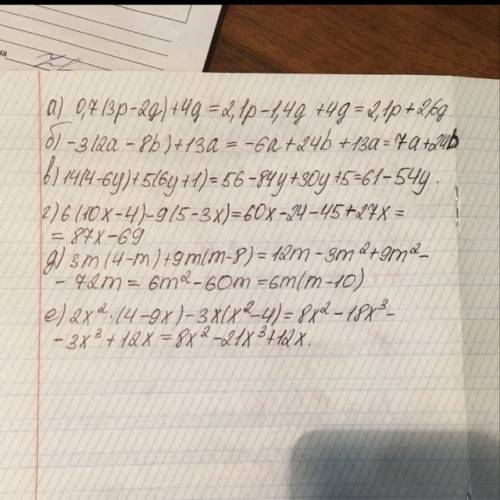 а) 0,7(3p-2g)+4g = 2,1p-1,4g +4g = 2,1p+2,6g.
б) -3(2a - 8b)+13a = -6a+24b +13a = 7a+24b
в) 14(4-6y)+5(6y+1)=56-84y+30y+5=61-54y.
г) 6(10x-4)-9(5-3x)=60x-24-45+27x=
= 87x-69
д) 3m(4-m)+9m(m-8) = 12m-3m²+9m²-
- 72m = 6m²-60m =6m(m-10)
е) 2x²·(4-9x)-3x(x²-4)=8x²-18x³-
-3x³+12x=8x²-21x³+12x.